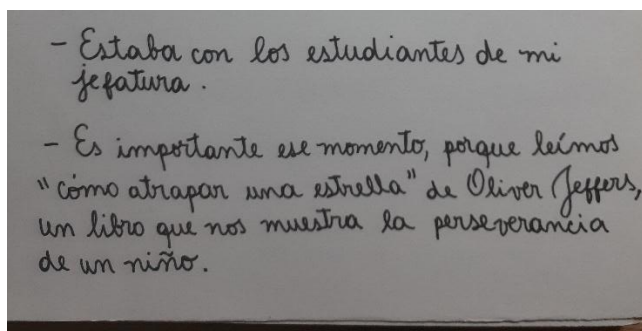 - Estaba con los estudiantes de mi
jefatura.
- Es importante ese momento, porque leímos
"cómo atrapar una estrella" de Oliver Jeffers,
un libro que nos muestra la perseverancia
de un niño.